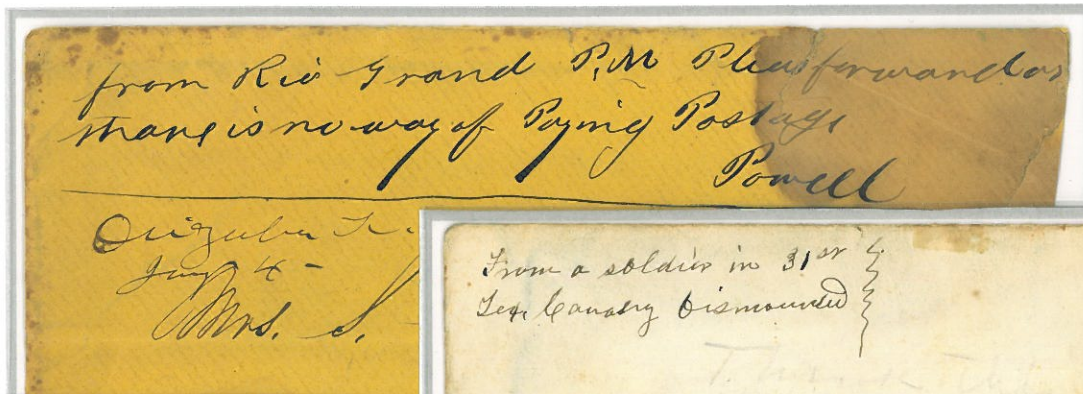 from Rio Grand P.M Pleas forward as
thare is no way of Paying Postage
Powell
Jany 4 -
Mrs. S.
From a soldier in 31st
Tex. Cavalry Dismounted